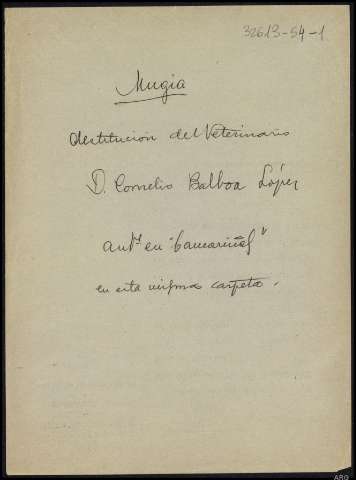 32613-54-1
Mugia
destitución del Veterinario
D. Cornelio Balboa López
en "Camariñas"
en esta misma carpeta.
ARG